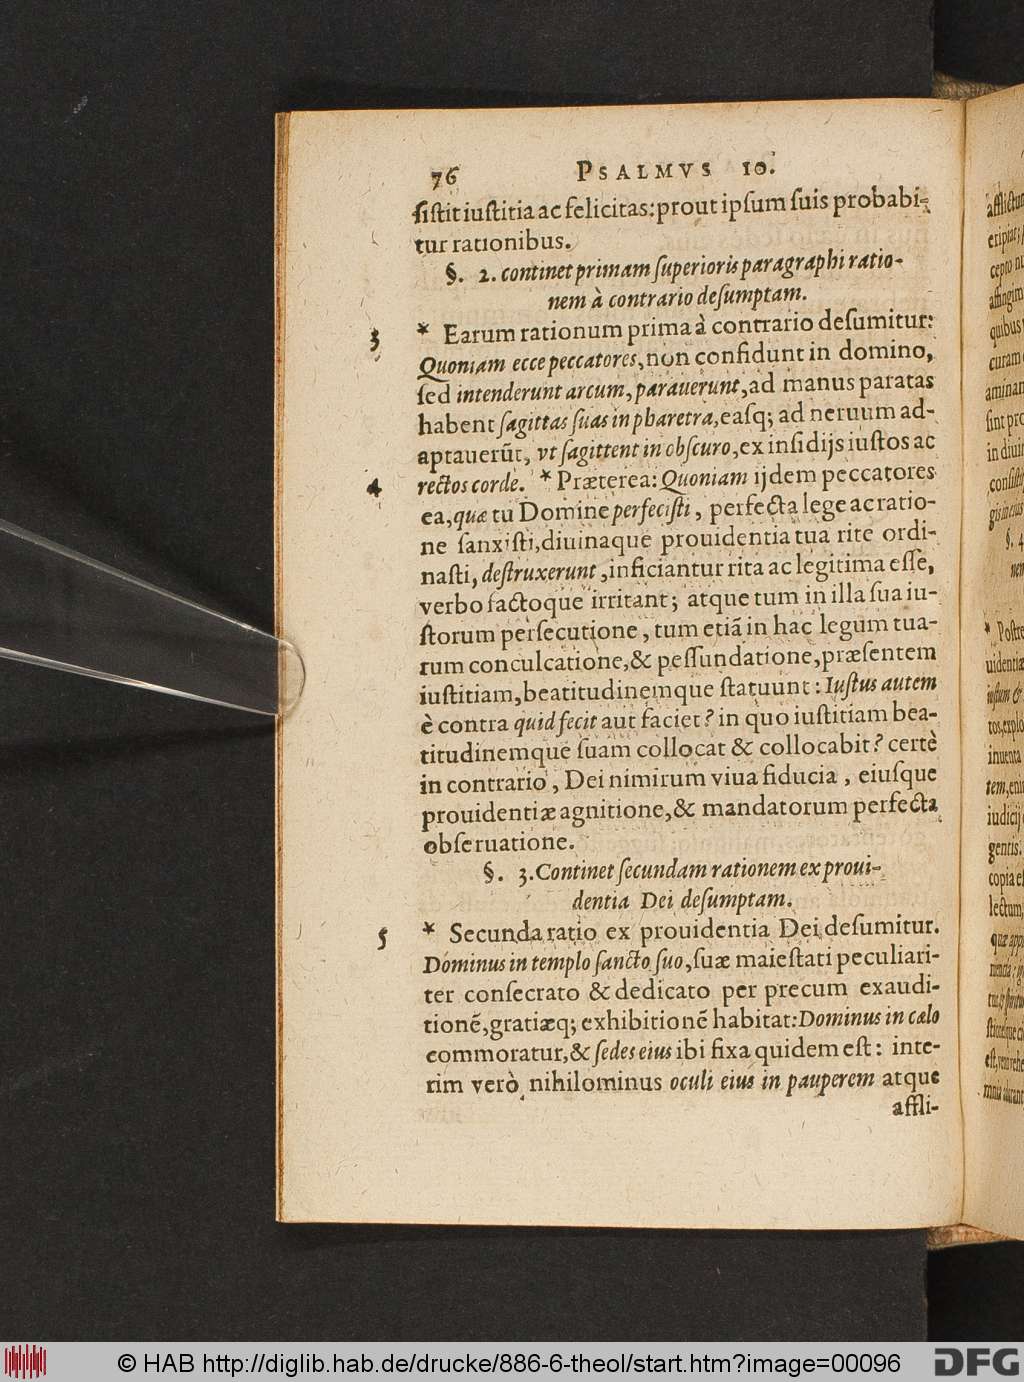 76 PSALMVS 10.
ſiſtit iuſtitia ac felicitas: prout ipſum ſuis probabi-
tur rationibus.
§. 2. continet primam ſuperioris paragraphi ratio-
nem à contrario deſumptam.
3 * Earum rationum prima à contrario deſumitur:
Quoniam ecce peccatores, non confidunt in domino,
ſed intenderunt arcum, parauerunt, ad manus paratas
habent ſagittas ſuas in pharetra, eaſq; ad neruum ad-
aptauerūt, vt ſagittent in obſcuro, ex inſidijs iuſtos ac
4 rectos corde. * Præterea: Quoniam ijdem peccatores
ea, quæ tu Domine perfeciſti, perfecta lege ac ratio-
ne ſanxiſti, diuinaque prouidentia tua rite ordi-
naſti, deſtruxerunt, inficiantur rita ac legitima eſſe,
verbo factoque irritant; atque tum in illa ſua iu-
ſtorum perſecutione, tum etiã in hac legum tua-
rum conculcatione, & peſſundatione, præſentem
iuſtitiam, beatitudinemque ſtatuunt: Iuſtus autem
è contra quid fecit aut faciet? in quo iuſtitiam bea-
titudinemque ſuam collocat & collocabit? certè
in contrario, Dei nimirum viua fiducia, eiuſque
prouidentiæ agnitione, & mandatorum perfecta
obſeruatione.
§. 3. Continet ſecundam rationem ex proui-
dentia Dei deſumptam.
5 * Secunda ratio ex prouidentia Dei deſumitur.
Dominus in templo ſancto ſuo, ſuæ maieſtati peculiari-
ter conſecrato & dedicato per precum exaudi-
tionē, gratiæq; exhibitionē habitat: Dominus in cælo
commoratur, & ſedes eius ibi fixa quidem eſt: inte-
rim verò nihilominus oculi eius in pauperem atque
affli-
© HAB http://diglib.hab.de/drucke/886-6-theol/start.htm?image=00096
DFG